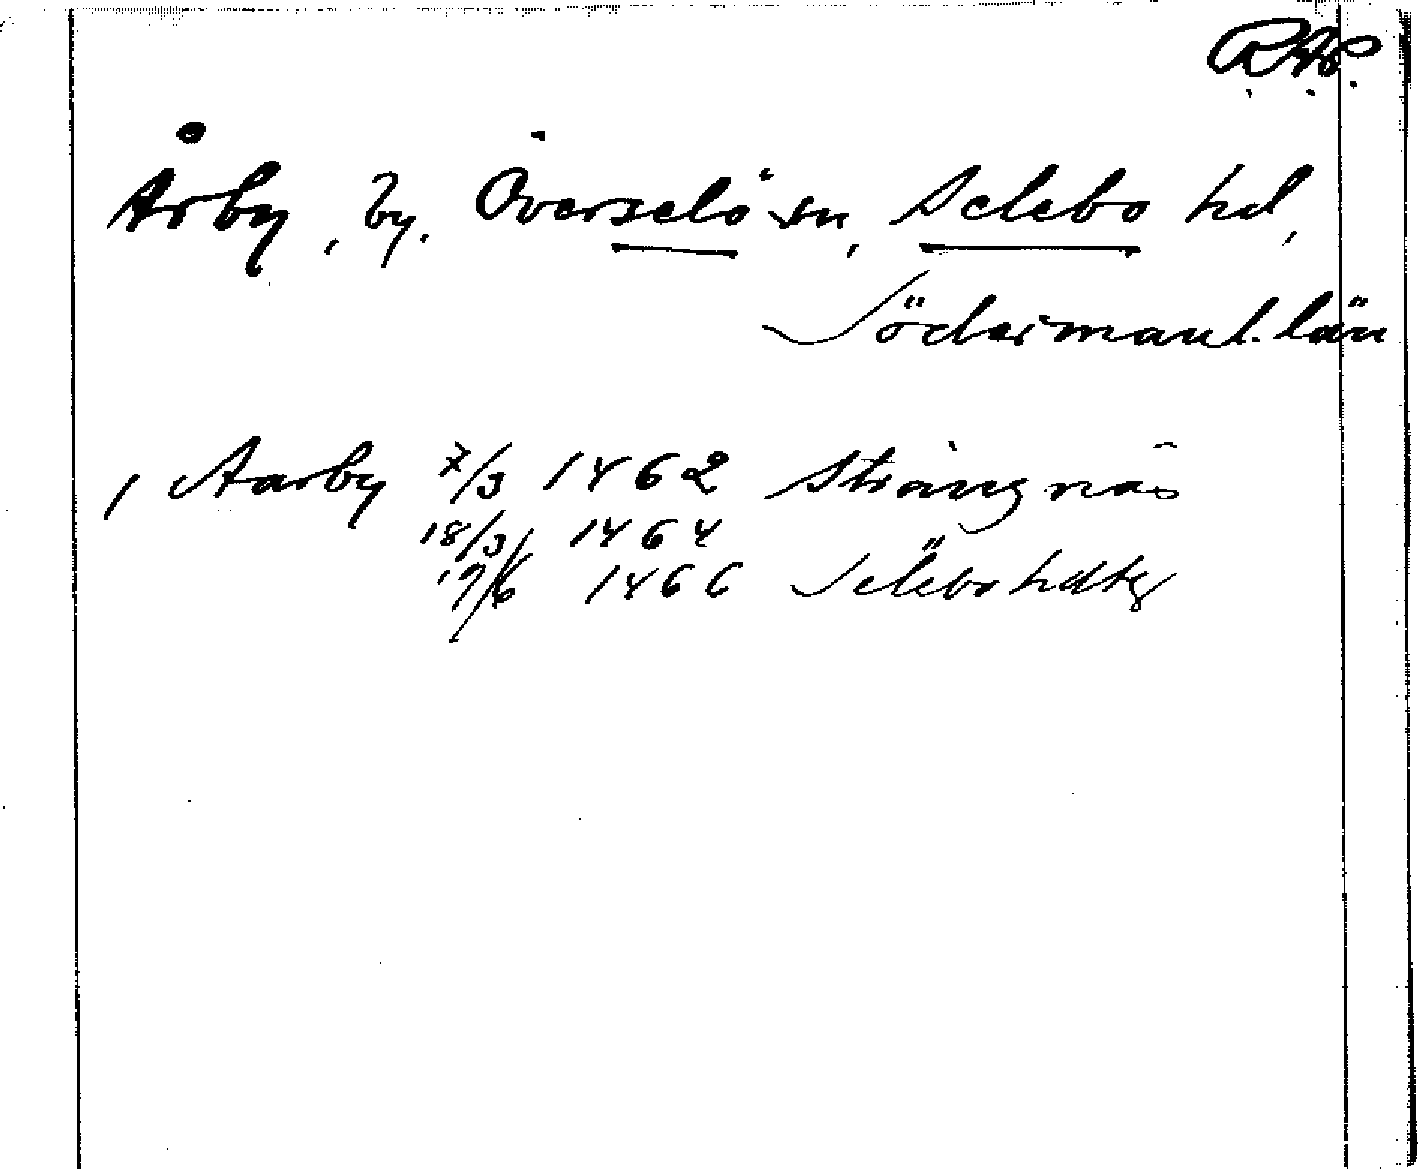 R.A.P.
Årby, by. Överselö sn, Selebo hd,
Södermanl. län
, Aarby 7/3 1462 Strängnäs
18/3 1464
17/6 1466 Selebo hdtg